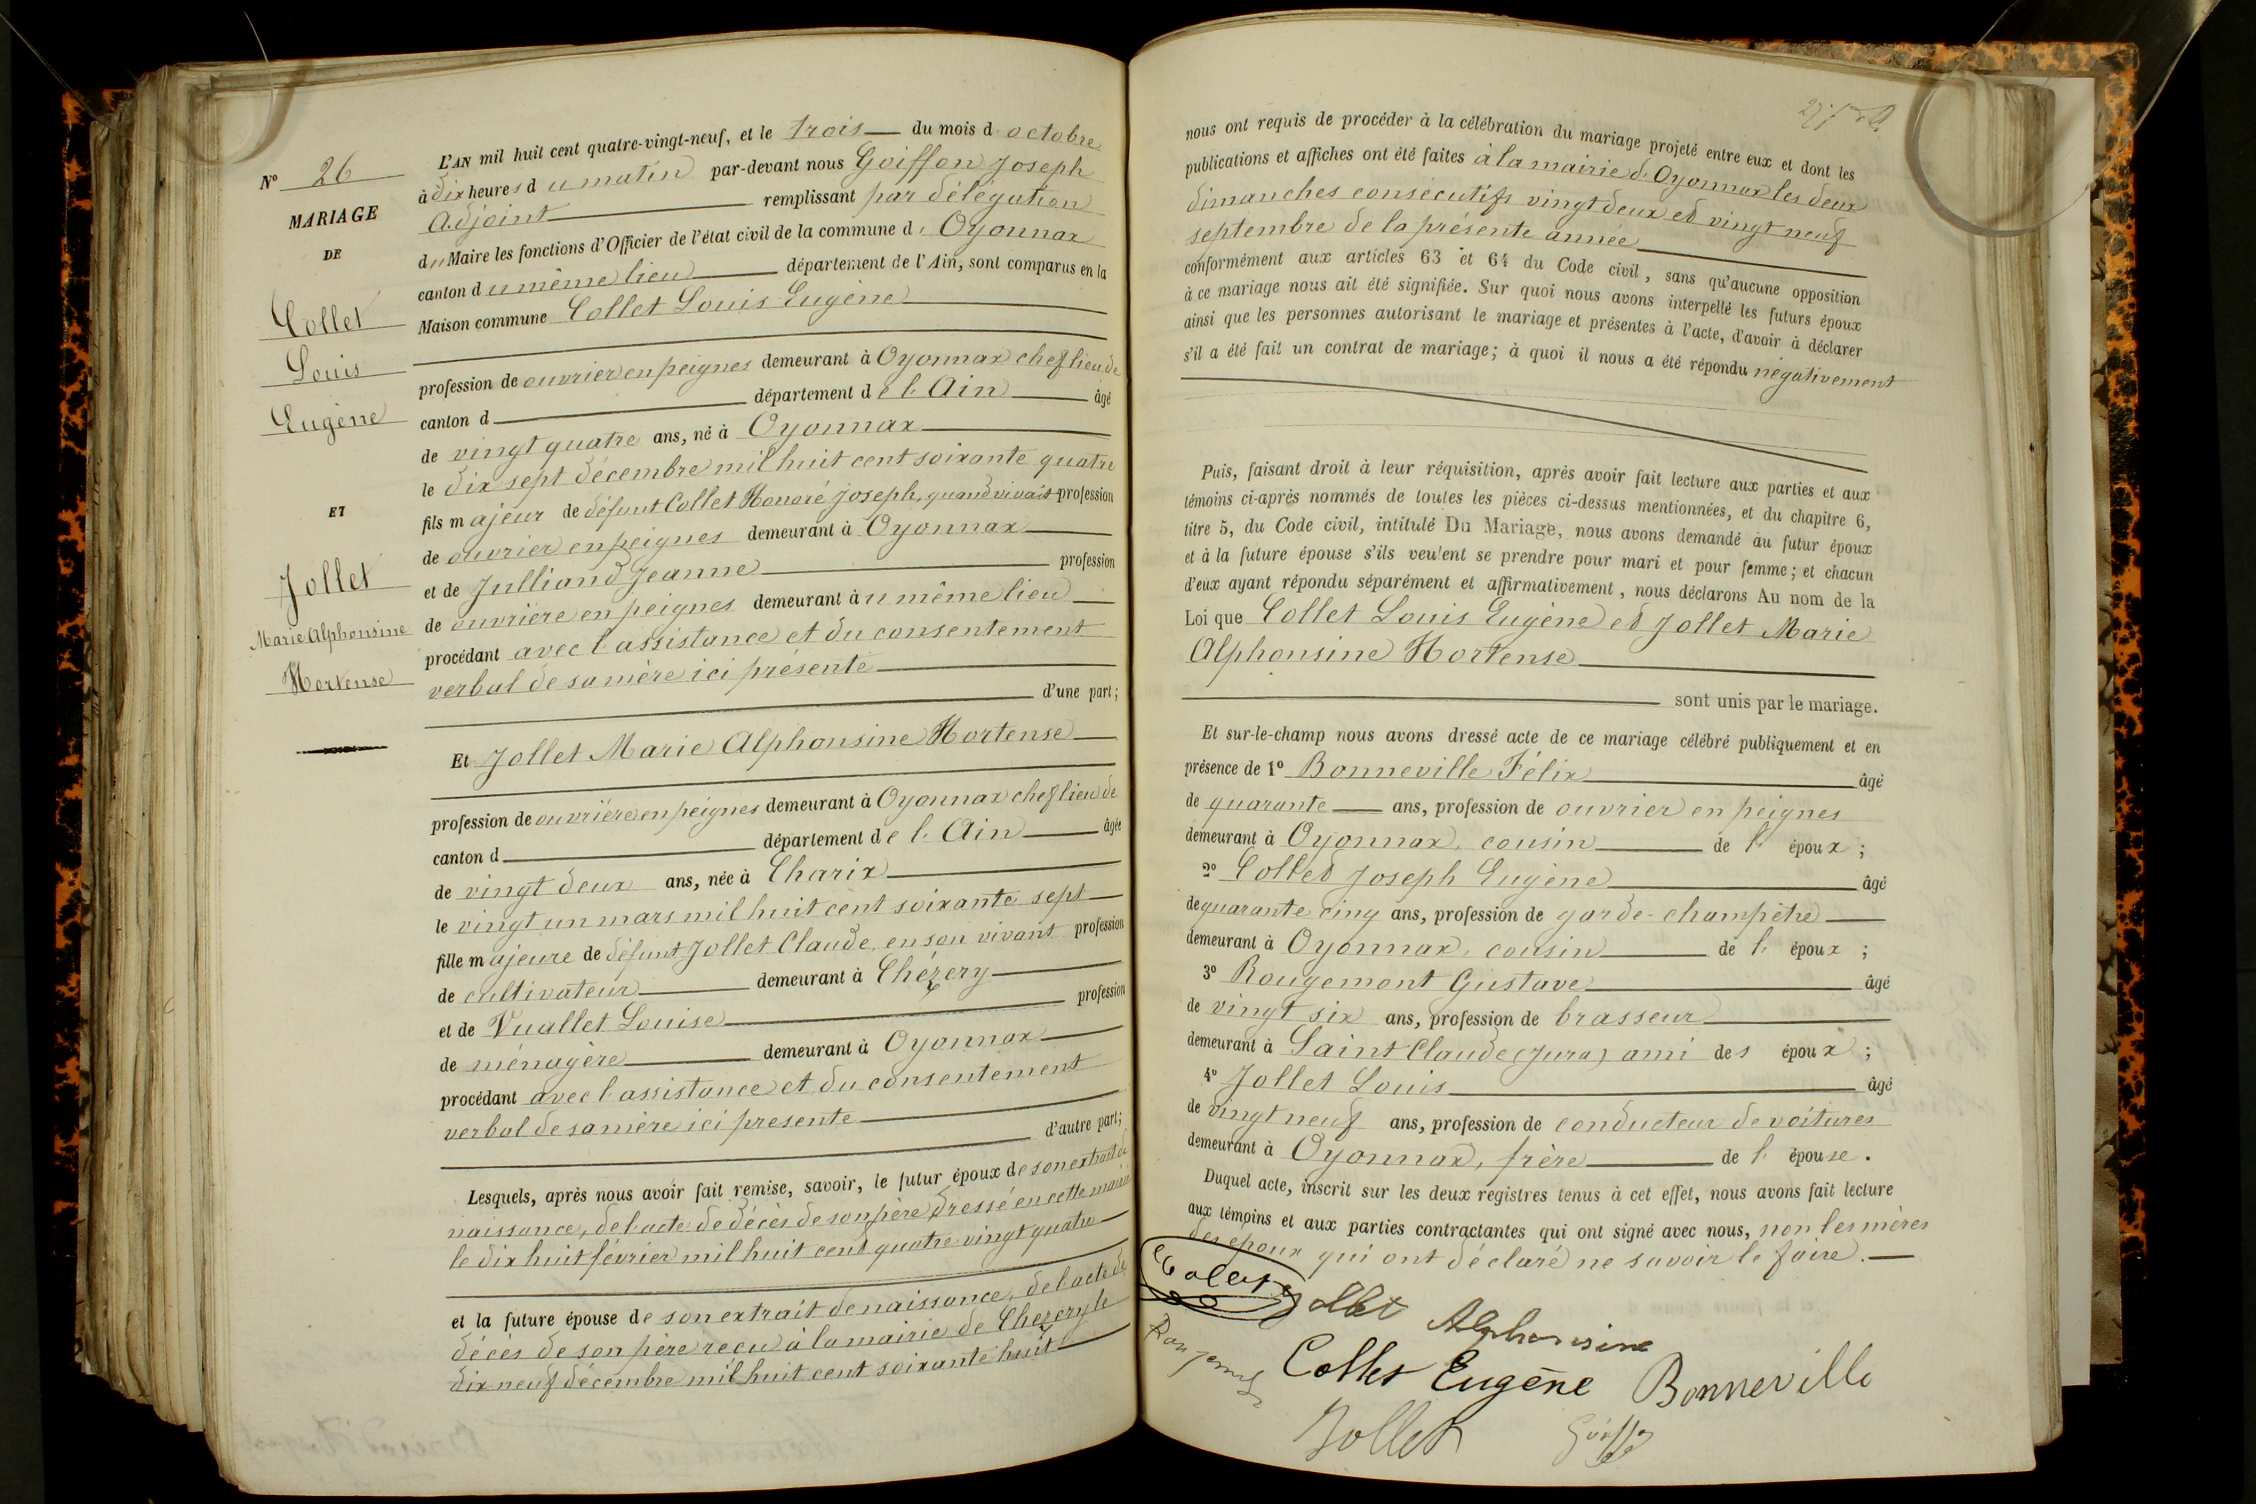 N° 26
MARIAGE
DE
Collet
Louis
Eugène
ET
Jollet
Marie Alphonsine
Hortense
L'AN mil huit cent quatre-vingt-neuf, et le trois du mois d octobre
à dix heures du matin par-devant nous Goiffon Joseph
Adjoint remplissant par délégation
du Maire les fonctions d'Officier de l'état civil de la commune d' Oyonnax
canton du même lieu département de l'Ain, sont comparus en la
Maison commune Collet Louis Eugène
profession de ouvrier en peignes demeurant à Oyonnax chef lieu de
canton d département de l'Ain âgé
de vingt quatre ans, né à Oyonnax
le dix sept décembre mil huit cent soixante quatre
fils majeur de défunt Collet Honoré Joseph, quand vivait profession
de ouvrier en peignes demeurant à Oyonnax
et de Julliand Jeanne profession
de ouvrière en peignes demeurant au même lieu
procédant avec l'assistance et du consentement
verbal de sa mère ici présente
d'une part;
Et Jollet Marie Alphonsine Hortense
profession de ouvrière en peignes demeurant à Oyonnax chef lieu de
canton d département de l'Ain âgée
de vingt deux ans, née à Charix
le vingt un mars mil huit cent soixante sept
fille majeure de défunt Jollet Claude en son vivant profession
de cultivateur demeurant à Chézery
et de Vuallet Louise profession
de ménagère demeurant à Oyonnax
procédant avec l'assistance et du consentement
verbal de sa mère ici présente
d'autre part;
Lesquels, après nous avoir fait remise, savoir, le futur époux de son extrait de
naissance, de l'acte de décès de son père dressé en cette mairie
le dix huit février mil huit cent quatre-vingt quatre
et la future épouse de son extrait de naissance, de l'acte de
décès de son père reçu à la mairie de Chezery le
dix neuf décembre mil huit cent soixante huit
nous ont requis de procéder à la célébration du mariage projeté entre eux et dont les
publications et affiches ont été faites à la mairie d'Oyonnax les deux
dimanches consécutifs vingt deux et vingt neuf
septembre de la présente année
conformément aux articles 63 et 64 du Code civil, sans qu'aucune opposition
à ce mariage nous ait été signifiée. Sur quoi nous avons interpellé les futurs époux
ainsi que les personnes autorisant le mariage et présentes à l'acte, d'avoir à déclarer
s'il a été fait un contrat de mariage; à quoi il nous a été répondu négativement
Puis, faisant droit à leur réquisition, après avoir fait lecture aux parties et aux
témoins ci-après nommés de toutes les pièces ci-dessus mentionnées, et du chapitre 6,
titre 5, du Code civil, intitulé Du Mariage, nous avons demandé au futur époux
et à la future épouse s'ils veulent se prendre pour mari et pour femme; et chacun
d'eux ayant répondu séparément et affirmativement, nous déclarons Au nom de la
Loi que Collet Louis Eugène et Jollet Marie
Alphonsine Hortense
sont unis par le mariage.
Et sur-le-champ nous avons dressé acte de ce mariage célébré publiquement et en
présence de 1° Bonneville Félix âgé
de quarante ans, profession de ouvrier en peignes
demeurant à Oyonnax, cousin de l' époux;
2° Collet Joseph Eugène âgé
de quarante cinq ans, profession de garde-champêtre
demeurant à Oyonnax, cousin de l' époux;
3° Rougemont Gustave âgé
de vingt six ans, profession de brasseur
demeurant à Saint Claude (Jura) ami des époux;
4° Jollet Louis âgé
de vingt neuf ans, profession de conducteur de voitures
demeurant à Oyonnax, frère de l' épouse.
Duquel acte, inscrit sur les deux registres tenus à cet effet, nous avons fait lecture
aux témoins et aux parties contractantes qui ont signé avec nous, non les mères
des époux qui ont déclaré ne savoir le faire.
Collet Jollet Alphonsine
Collet Eugène Bonneville
Jollet